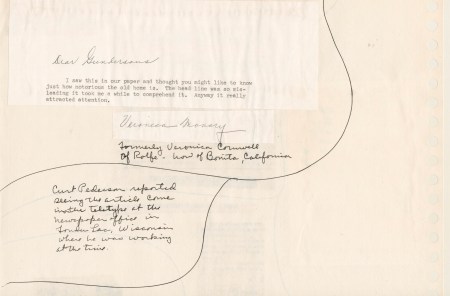 Dear Gundersons
I saw this in our paper and thought you might like to know
just how notorious the old home is. The head line was so mis-
leading it took me a while to comprehend it. Anyway it really
attracted attention.
Veronica Massey
Formerly Veronica Cornwell
Of Rolfe - now of Bonita, California
Curt Pederson reported
seeing the article come
in the teletype at the
newspaper office in
Wisconsin
where he was working
at the time.